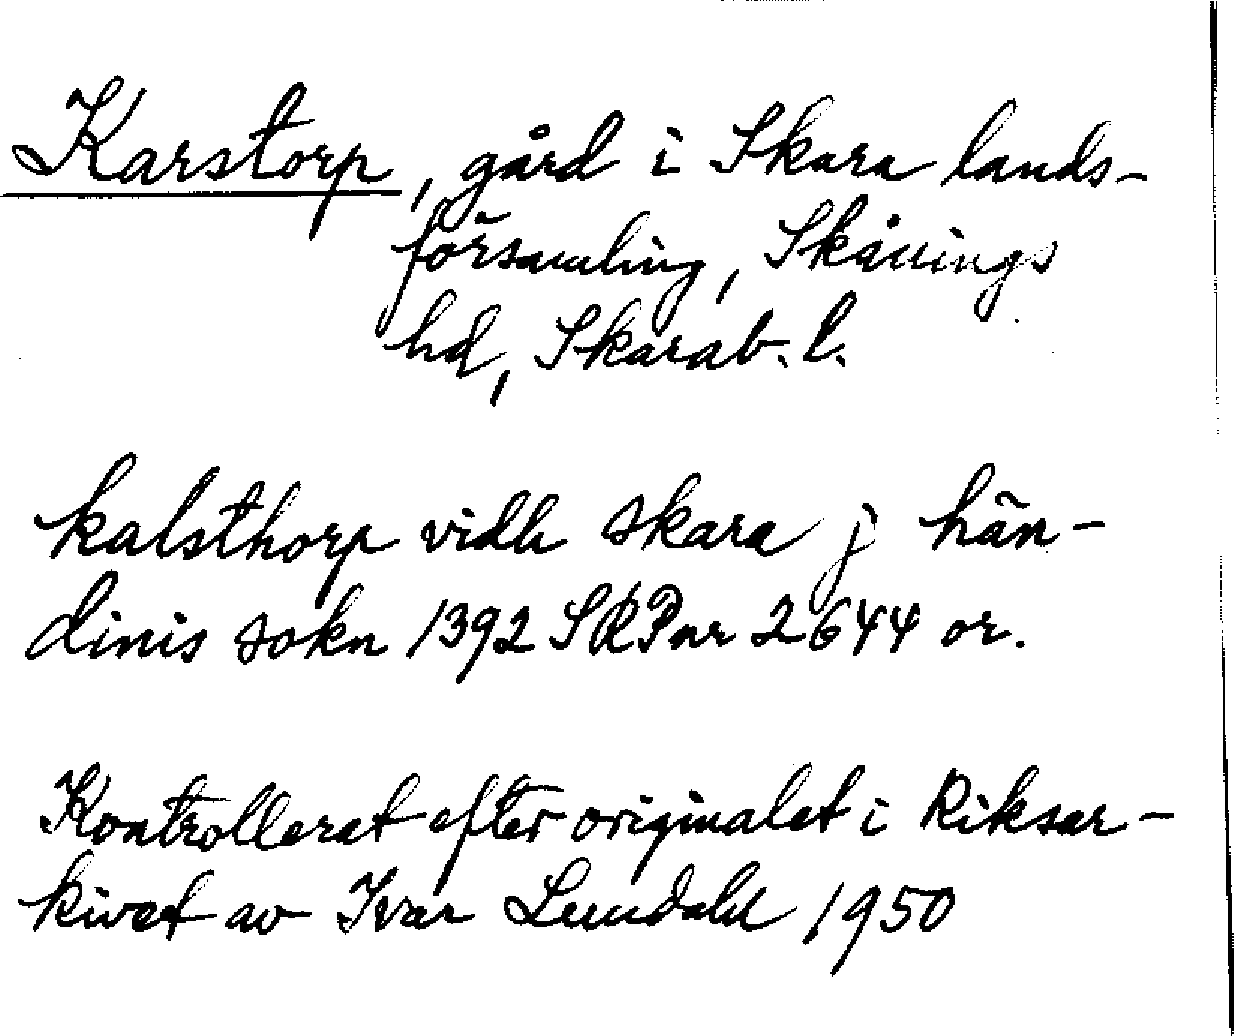 Karstorp, gård i Skara lands-
församling, Skånings
hd, Skarab. l.
kalsthorp vidh skara j hän-
dinis sokn 1392 SRPnr 2644 or.
Kontrollerat efter originalet i Riksar-
kivet av Ivar Lundahl 1950